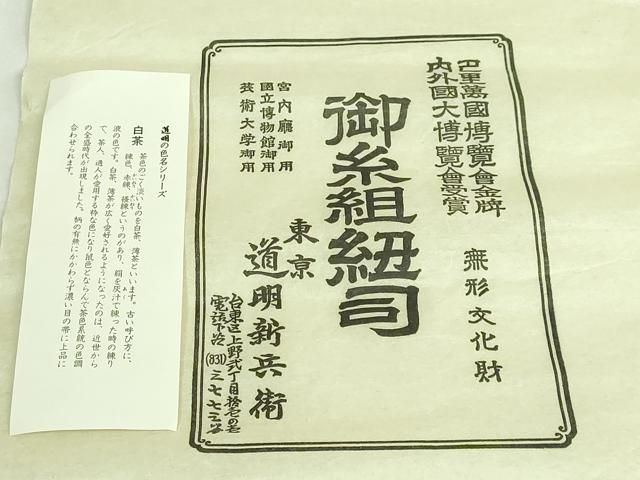 巴里萬國博覽會金牌
内外國大博覽會受賞
無形文化財
御糸組紐司
宮内廳御用
國立博物館御用
芸術大学御用
東京
道明新兵衛
台東区上野弐丁目拾壱の壱
電話下谷(831)三七七三番
道明の色名シリーズ
白茶
茶色のごく淡いものを白茶、薄茶といいます。古い呼び方に、
練色、赤練、様練というのがあり、絹を灰汁で練った時の練り
液の色です。白茶、薄茶が広く愛好されるようになったのは、近世から
で、茶人、通人が愛用する粋な色になり鼠色とならんで茶色系統の色調
の全盛時代が出現しました。柄の有無にかかわらず濃い目の帯に上品に
合わせられます。